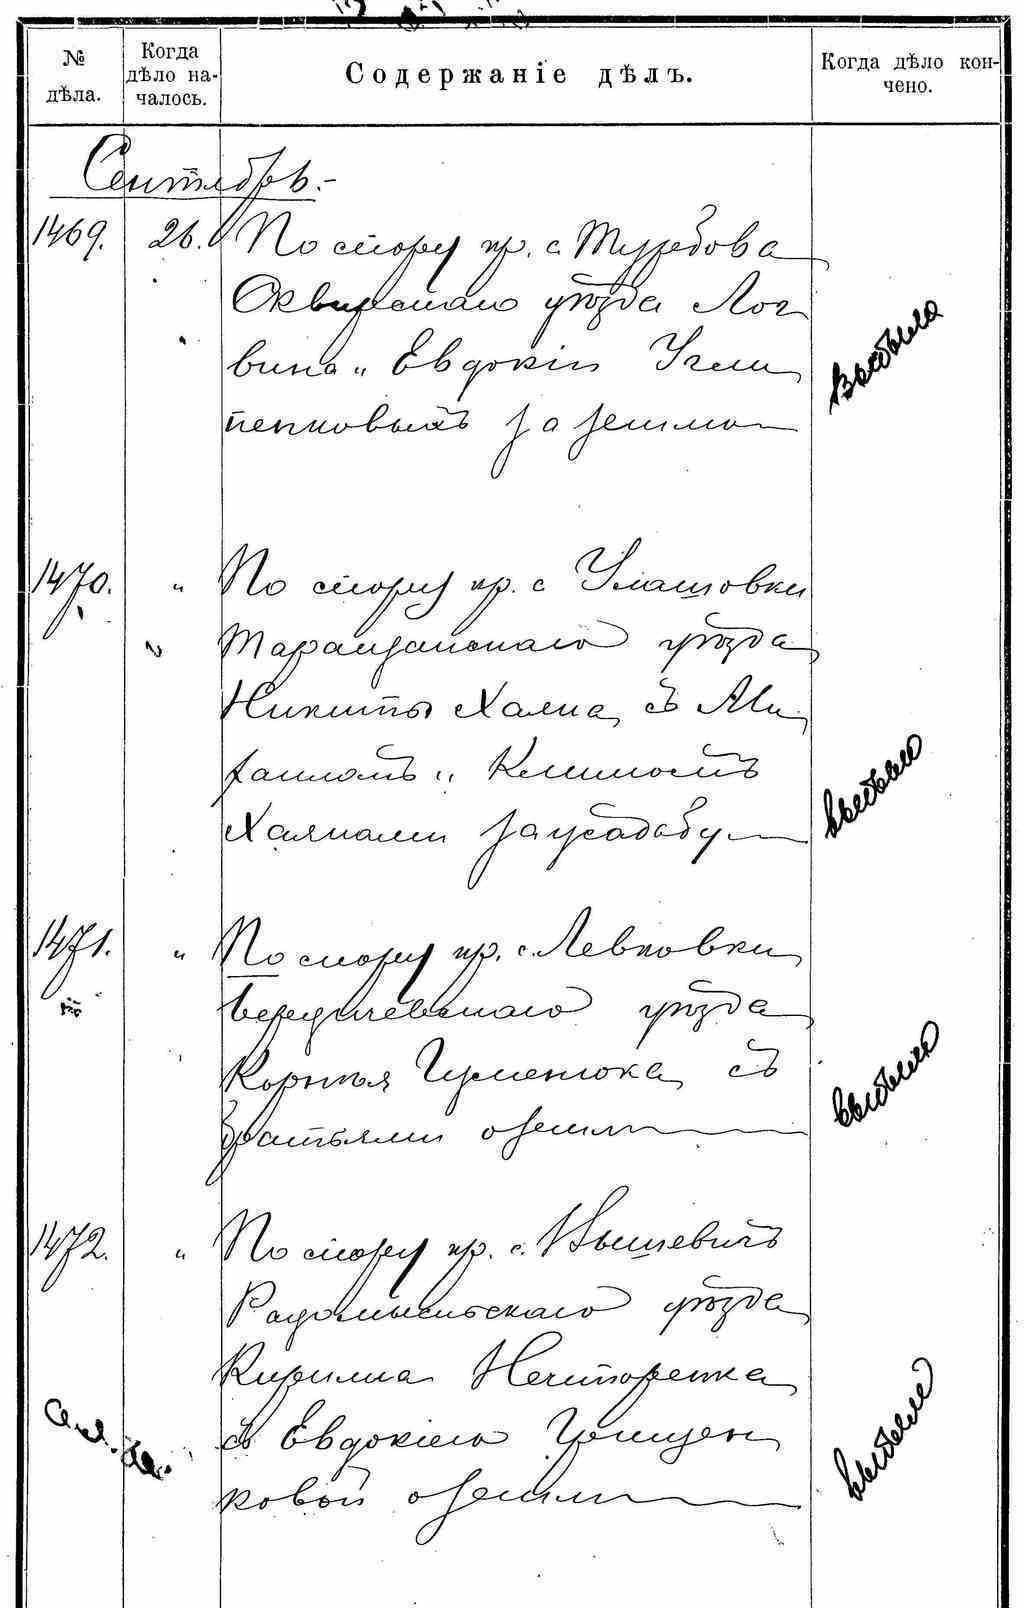 № дѣла.
Когда дѣло началось.
Содержаніе дѣлъ.
Когда дѣло кончено.
Сентябрь.-
1469. 26. По спору кр. с Турбова
Сквирскаго уѣзда Лог
вина и Евдокіи
пенковыхъ за землю
выбыло
1470. " По спору кр. с Улашовки
Таращанскаго уѣзда
Никиты Хална съ Ми
хаиломъ и Климомъ
Халнами за усадьбу
выбыло
1471. " По спору кр. с. Левковки
Бердичевскаго уѣзда
Корнѣя Гуменюка съ
братьями о земл
выбыло
1472. " По спору кр. с. Вышевичъ
Радомысльскаго уѣзда
Кирилла Нечипоренка
съ Евдокіею Грищен
ковой о земл
выбыло